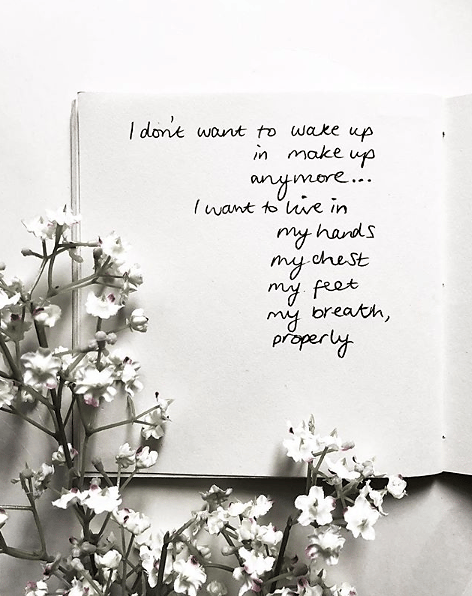 I don't want to wake up
in make up
anymore...
I want to live in
my hands
my chest
my feet
my breath,
properly